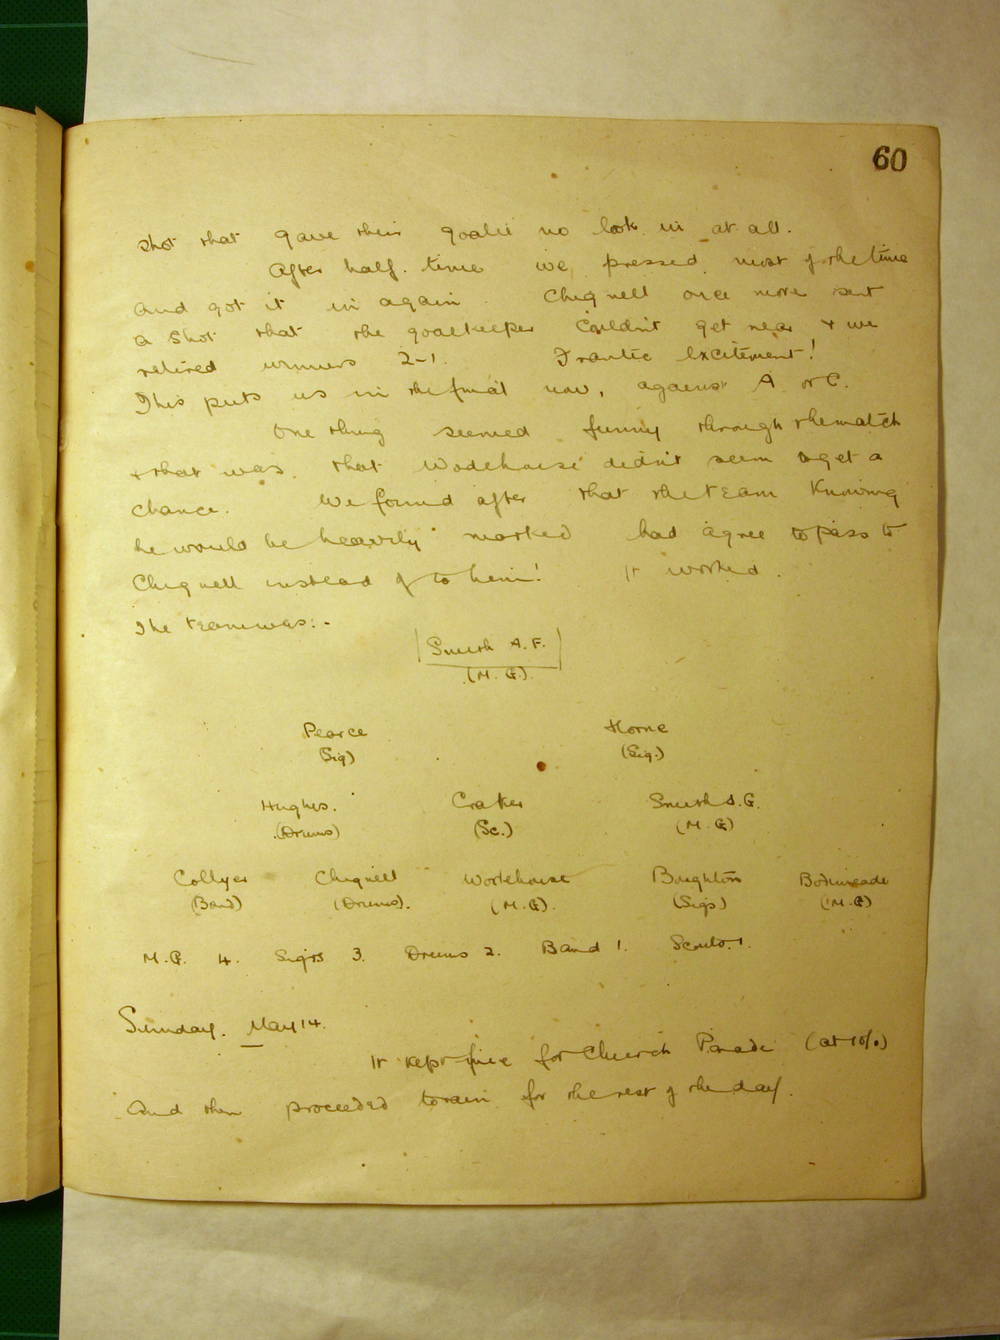 60
shot that gave their goalie no look in at all.
After half. time we pressed most of the time
and got it in again. Chignell once more sent
a shot that the goalkeeper couldn't get near & we
retired winners 2-1. Frantic excitement!
This puts us in the final now, against A or C.
One thing seemed funny through the match
& that was that Wodehouse didn't seem to get a
chance. We found after that the team knowing
he would be heavily marked had agree to pass to
Chignell instead of to him! It worked.
The team was:-
Smith A.F.
(M.G.)
Pearce Horne
(Sig) (Sig.)
Hughes. Craker Smith A.G.
(Drums) (Sc.) (M.G)
Collyer Chignell Wodehouse Boughton
(Band) (Drums). (M.G). (Sigs) (M.G)
M.G. 4. Sigs 3. Drums 2. Band 1. Scouts. 1.
Sunday. May 14.
It kept fine for Church Parade (at 10/.)
and then proceeded to rain for the rest of the day.